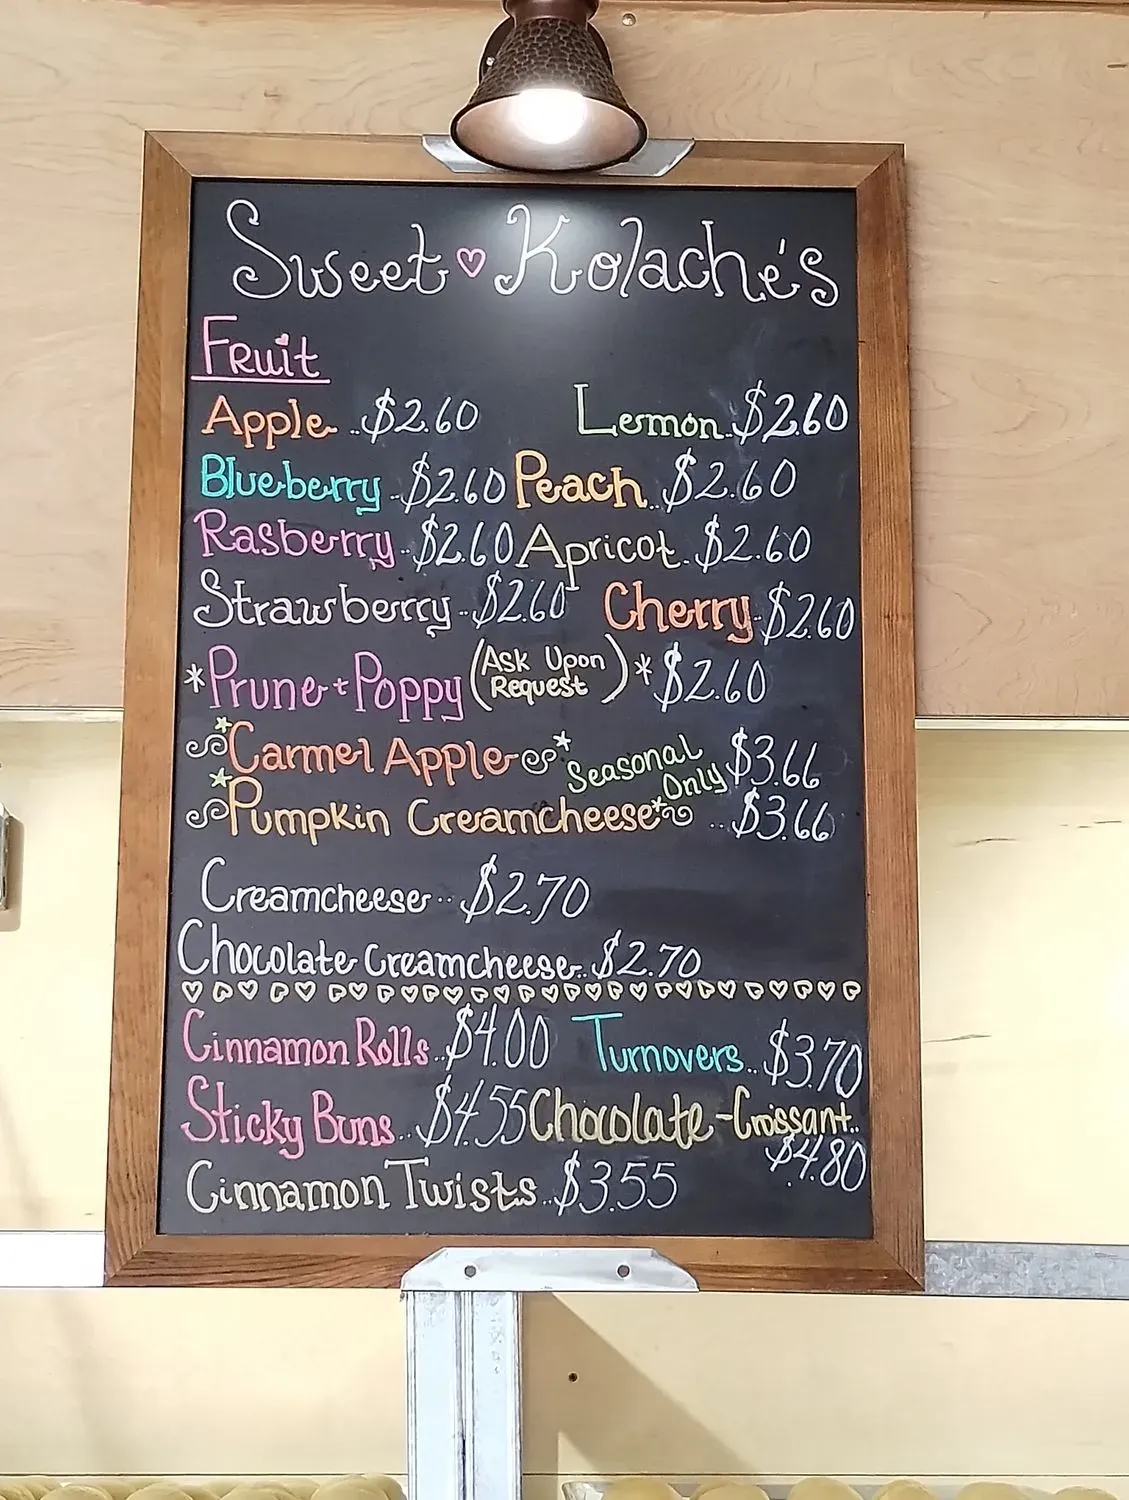 Sweet ♡ Kolaché's
Fruit
Apple ..$2.60 Lemon..$2.60
Blueberry ..$2.60 Peach..$2.60
Rasberry..$2.60 Apricot..$2.60
Strawberry..$2.60 Cherry..$2.60
*Prune + Poppy (Ask Upon Request)* $2.60
*Carmel Apple* Seasonal Only $3.66
*Pumpkin Creamcheese* ..$3.66
Creamcheese..$2.70
Chocolate Creamcheese..$2.70
Cinnamon Rolls..$4.00 Turnovers..$3.70
Sticky Buns..$4.55 Chocolate-Croissant..
$4.80
Cinnamon Twists..$3.55